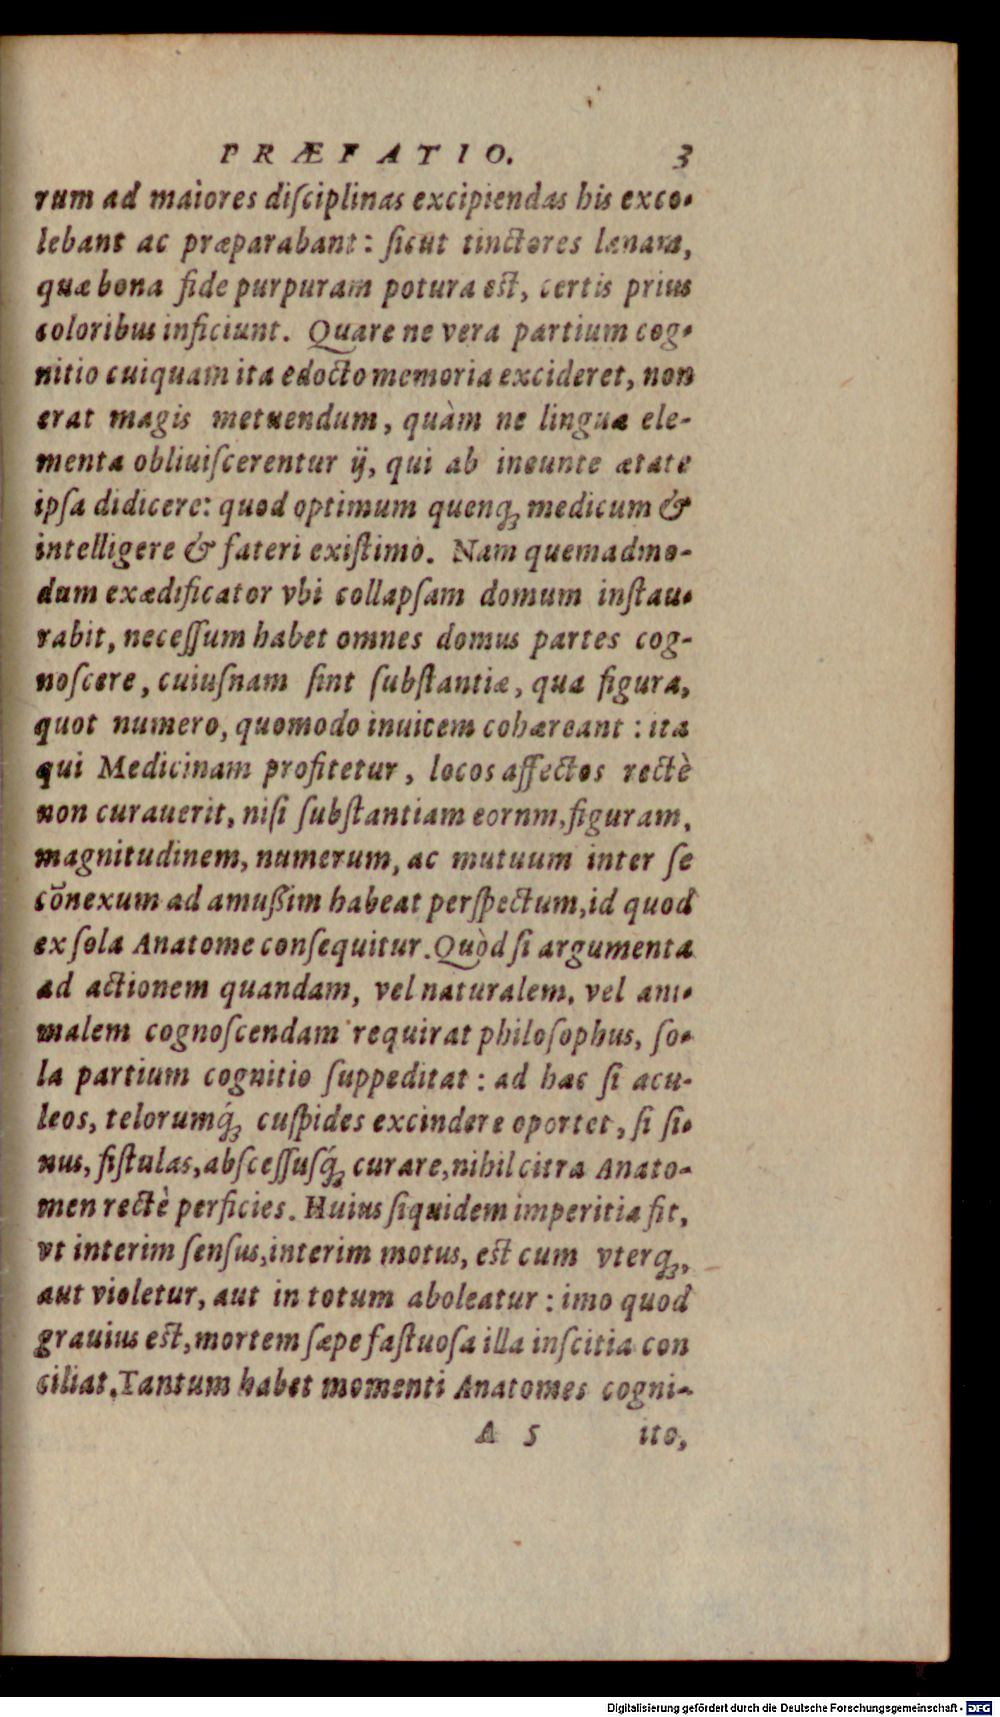 PRÆFATIO. 3
rum ad maiores diſciplinas excipiendas his exco-
lebant ac præparabant: ſicut tinctores lanam,
quæ bona fide purpuram potura est, certis prius
coloribus inficiunt. Quare ne vera partium cog-
nitio cuiquam ita edocto memoria excideret, non
erat magis metuendum, quàm ne linguæ ele-
menta obliuiſcerentur ij, qui ab ineunte ætate
ipſa didicere: quod optimum quenq; medicum &
intelligere & fateri exiſtimo. Nam quemadmo-
dum exædificator vbi collapſam domum inſtau-
rabit, neceſſum habet omnes domus partes cog-
noſcere, cuiuſnam ſint ſubſtantiæ, qua figura,
quot numero, quomodo inuicem cohæreant: ita
qui Medicinam profitetur, locos affectos rectè
non curauerit, niſi ſubſtantiam eornm, figuram,
magnitudinem, numerum, ac mutuum inter ſe
cõnexum ad amußim habeat perſpectum, id quod
ex ſola Anatome conſequitur. Quòd ſi argumenta
ad actionem quandam, vel naturalem, vel ani-
malem cognoſcendam requirat philoſophus, ſo-
la partium cognitio ſuppeditat: ad hæc ſi acu-
leos, telorumq́; cuſpides excindere oportet, ſi ſi-
nus, fiſtulas, abſceſſuſq́; curare, nihil citra Anato-
men rectè perficies. Huius ſiquidem imperitia fit,
vt interim ſenſus, interim motus, est cum vterq;,
aut violetur, aut in totum aboleatur: imo quod
grauius est, mortem ſæpe faſtuoſa illa inſcitia con
ciliat. Tantum habet momenti Anatomes cogni-
A 5 ito,
Digitalisierung gefördert durch die Deutsche Forschungsgemeinschaft - DFG